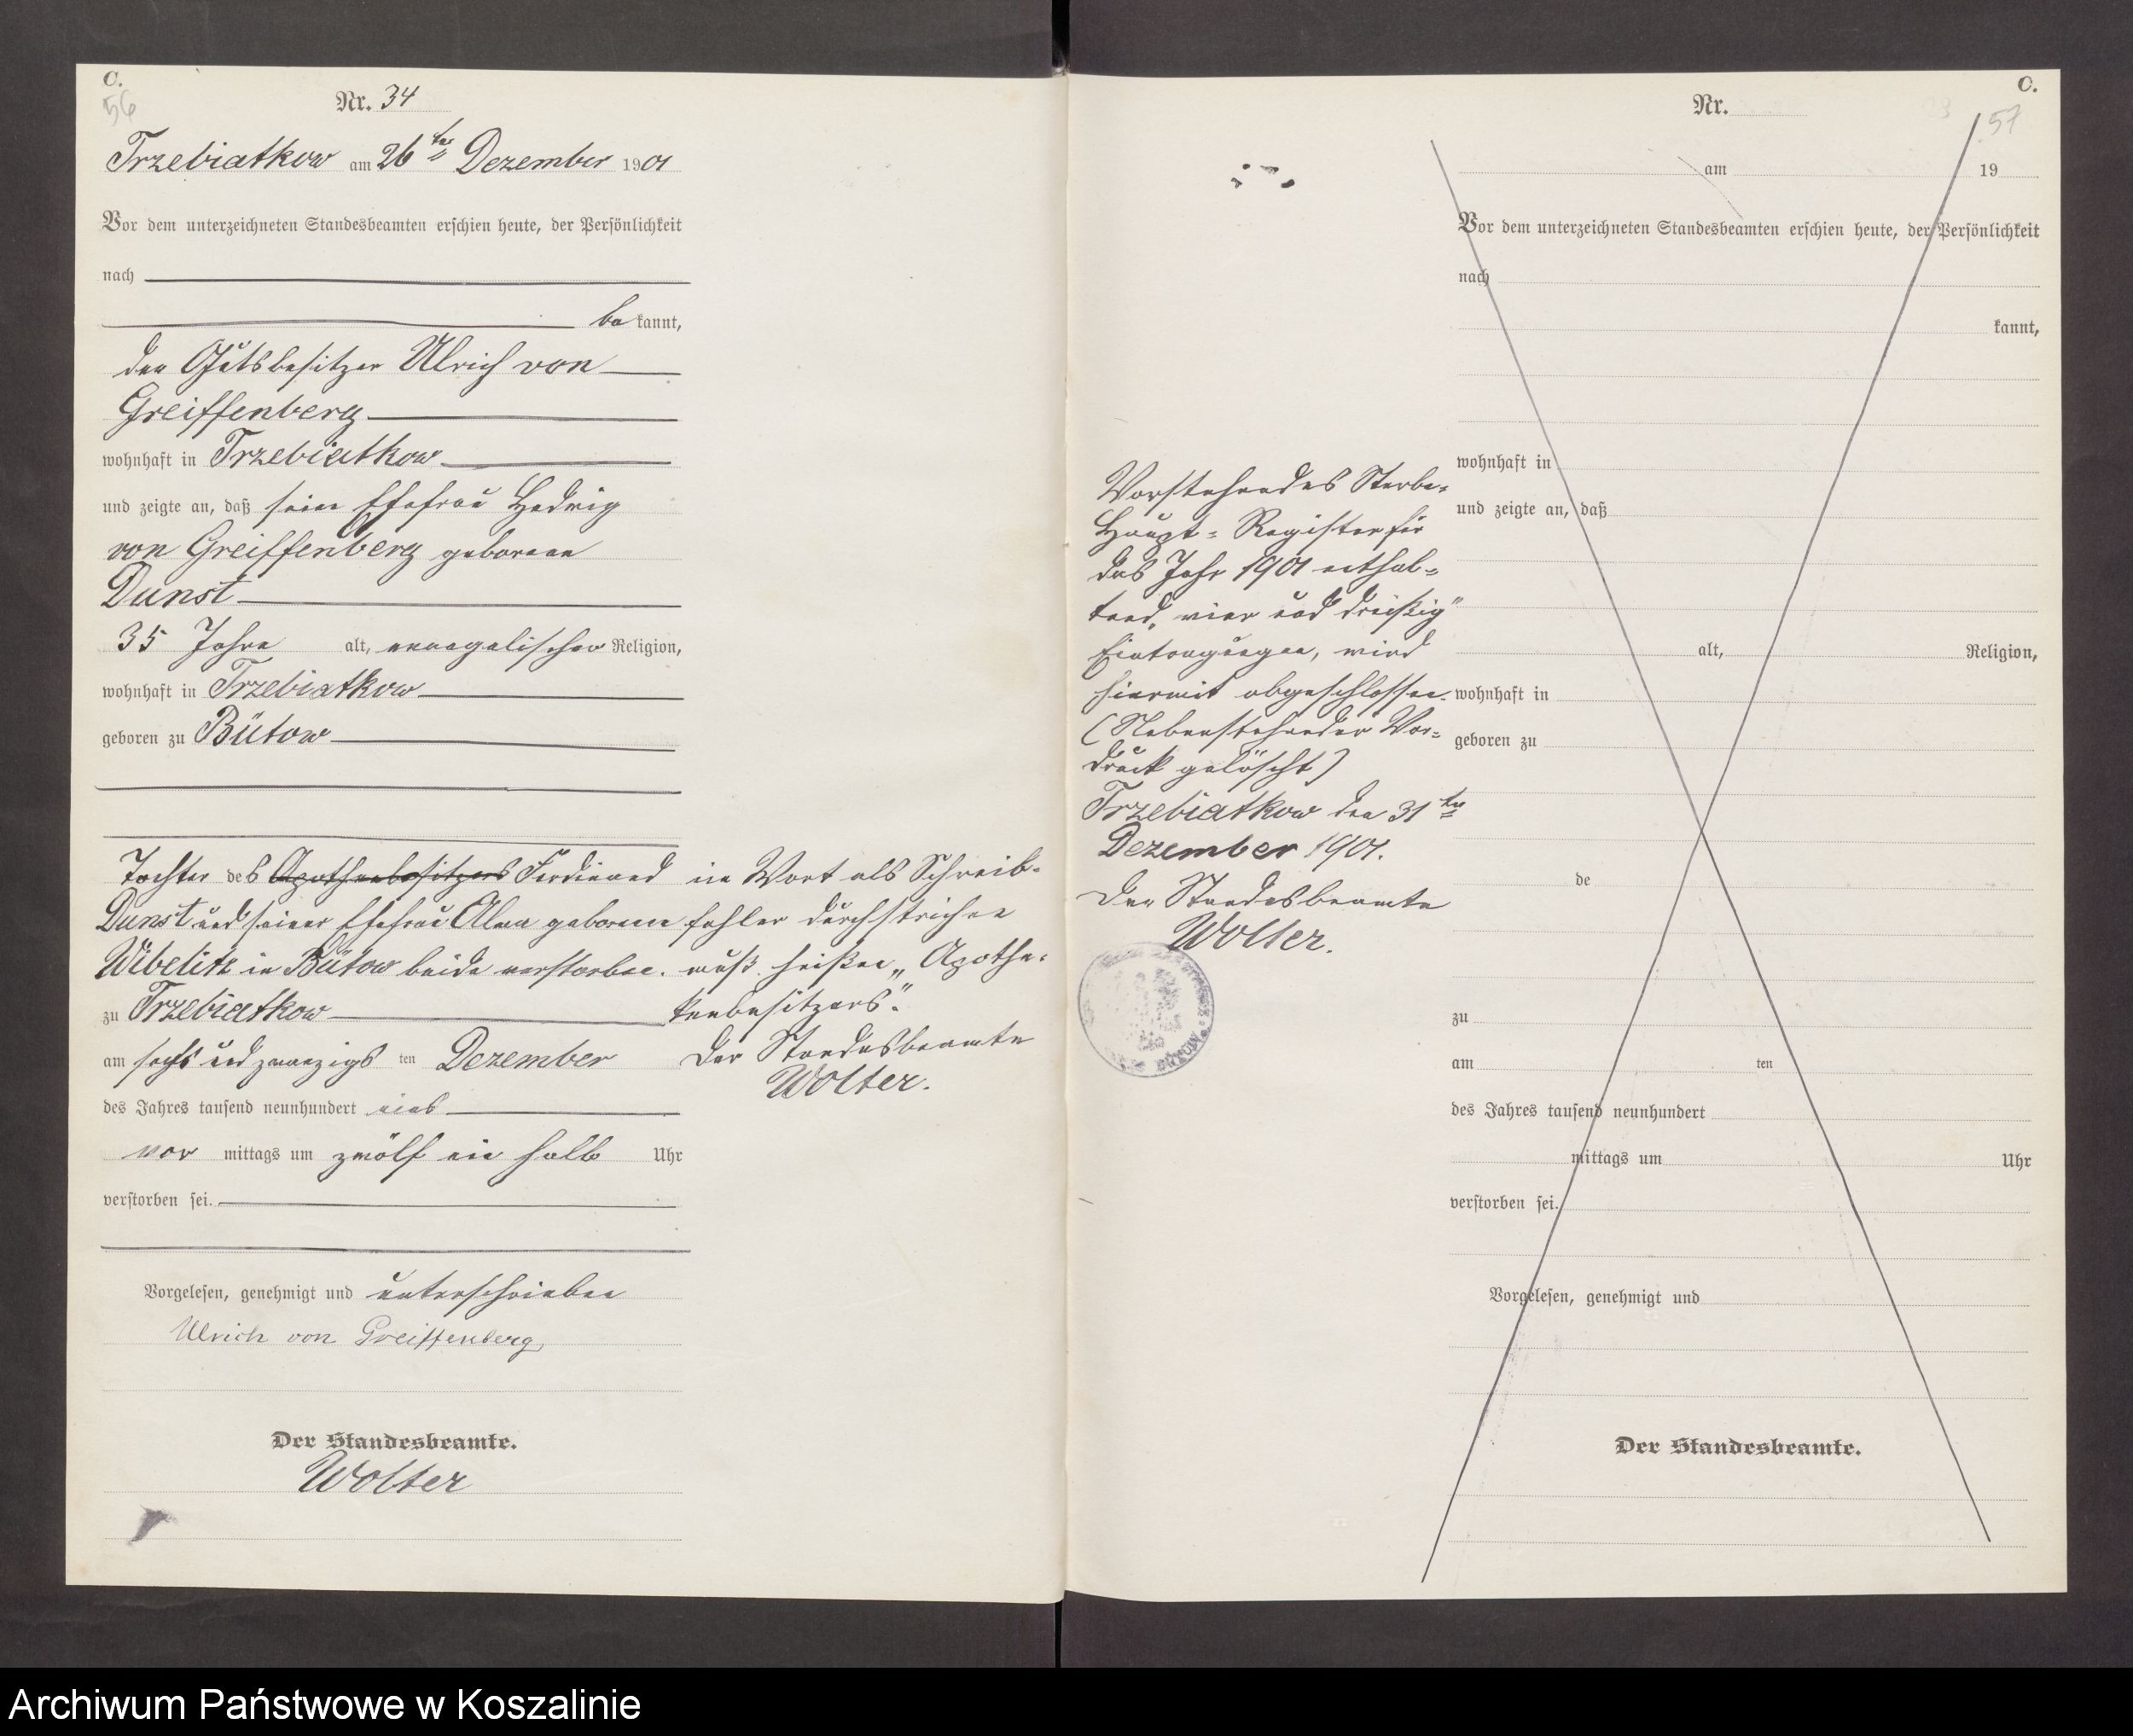 C.
56
Nr. 34
Trzebiatkow am 26ten Dezember 1901
Vor dem unterzeichneten Standesbeamten erschien heute, der Persönlichkeit
nach
be kannt,
der Gutsbesitzer Ulrich von
Greiffenberg
wohnhaft in Trzebiatkow
und zeigte an, daß seine Ehefrau Hedwig
von Greiffenberg geborene
Dunst
35 Jahre alt, evangelischer Religion,
wohnhaft in Trzebiatkow
geboren zu Bütow
Tochter des Apothenbesitzers Ferdinand
Dunst und seiner Ehefrau Alma geborene
Wibelitz in Bütow beide verstorben.
zu Trzebiatkow
am sechs und zwanzigs ten Dezember
des Jahres tausend neunhundert eins
vor mittags um zwölf ein halb Uhr
verstorben sei.
Vorgelesen, genehmigt und unterschrieben
Ulrich von Greiffenberg
Der Standesbeamte.
Wolter
in Wort als Schreib-
fehler durchstrichen
muß heißen „Apothe-
kenbesitzers".
Der Standesbeamte
Wolter.
Vorstehendes Sterbe-
Haupt-Register für
das Jahr 1901 enthal-
tend „vier und dreißig"
Eintragungen, wird
hiermit abgeschlossen.
(Nebenstehender Vor-
druck gelöscht)
Trzebiatkow den 31ten
Dezember 1901.
Der Standesbeamte
Wolter.
C.
57
Nr.
am 19
Vor dem unterzeichneten Standesbeamten erschien heute, der Persönlichkeit
nach
kannt,
wohnhaft in
und zeigte an, daß
alt, Religion,
wohnhaft in
geboren zu
de
zu
am ten
des Jahres tausend neunhundert
mittags um Uhr
verstorben sei.
Vorgelesen, genehmigt und
Der Standesbeamte.
Archiwum Państwowe w Koszalinie